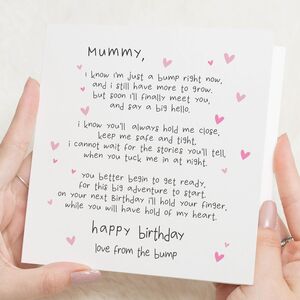 Mummy,
i know i'm just a bump right now,
and i still have more to grow.
but soon i'll finally meet you,
and say a big hello.
i know you'll always hold me close,
keep me safe and tight,
i cannot wait for the stories you'll tell,
when you tuck me in at night.
you better begin to get ready,
for this big adventure to start.
on your next birthday i'll hold your finger,
while you will have hold of my heart.
happy birthday
love from the bump